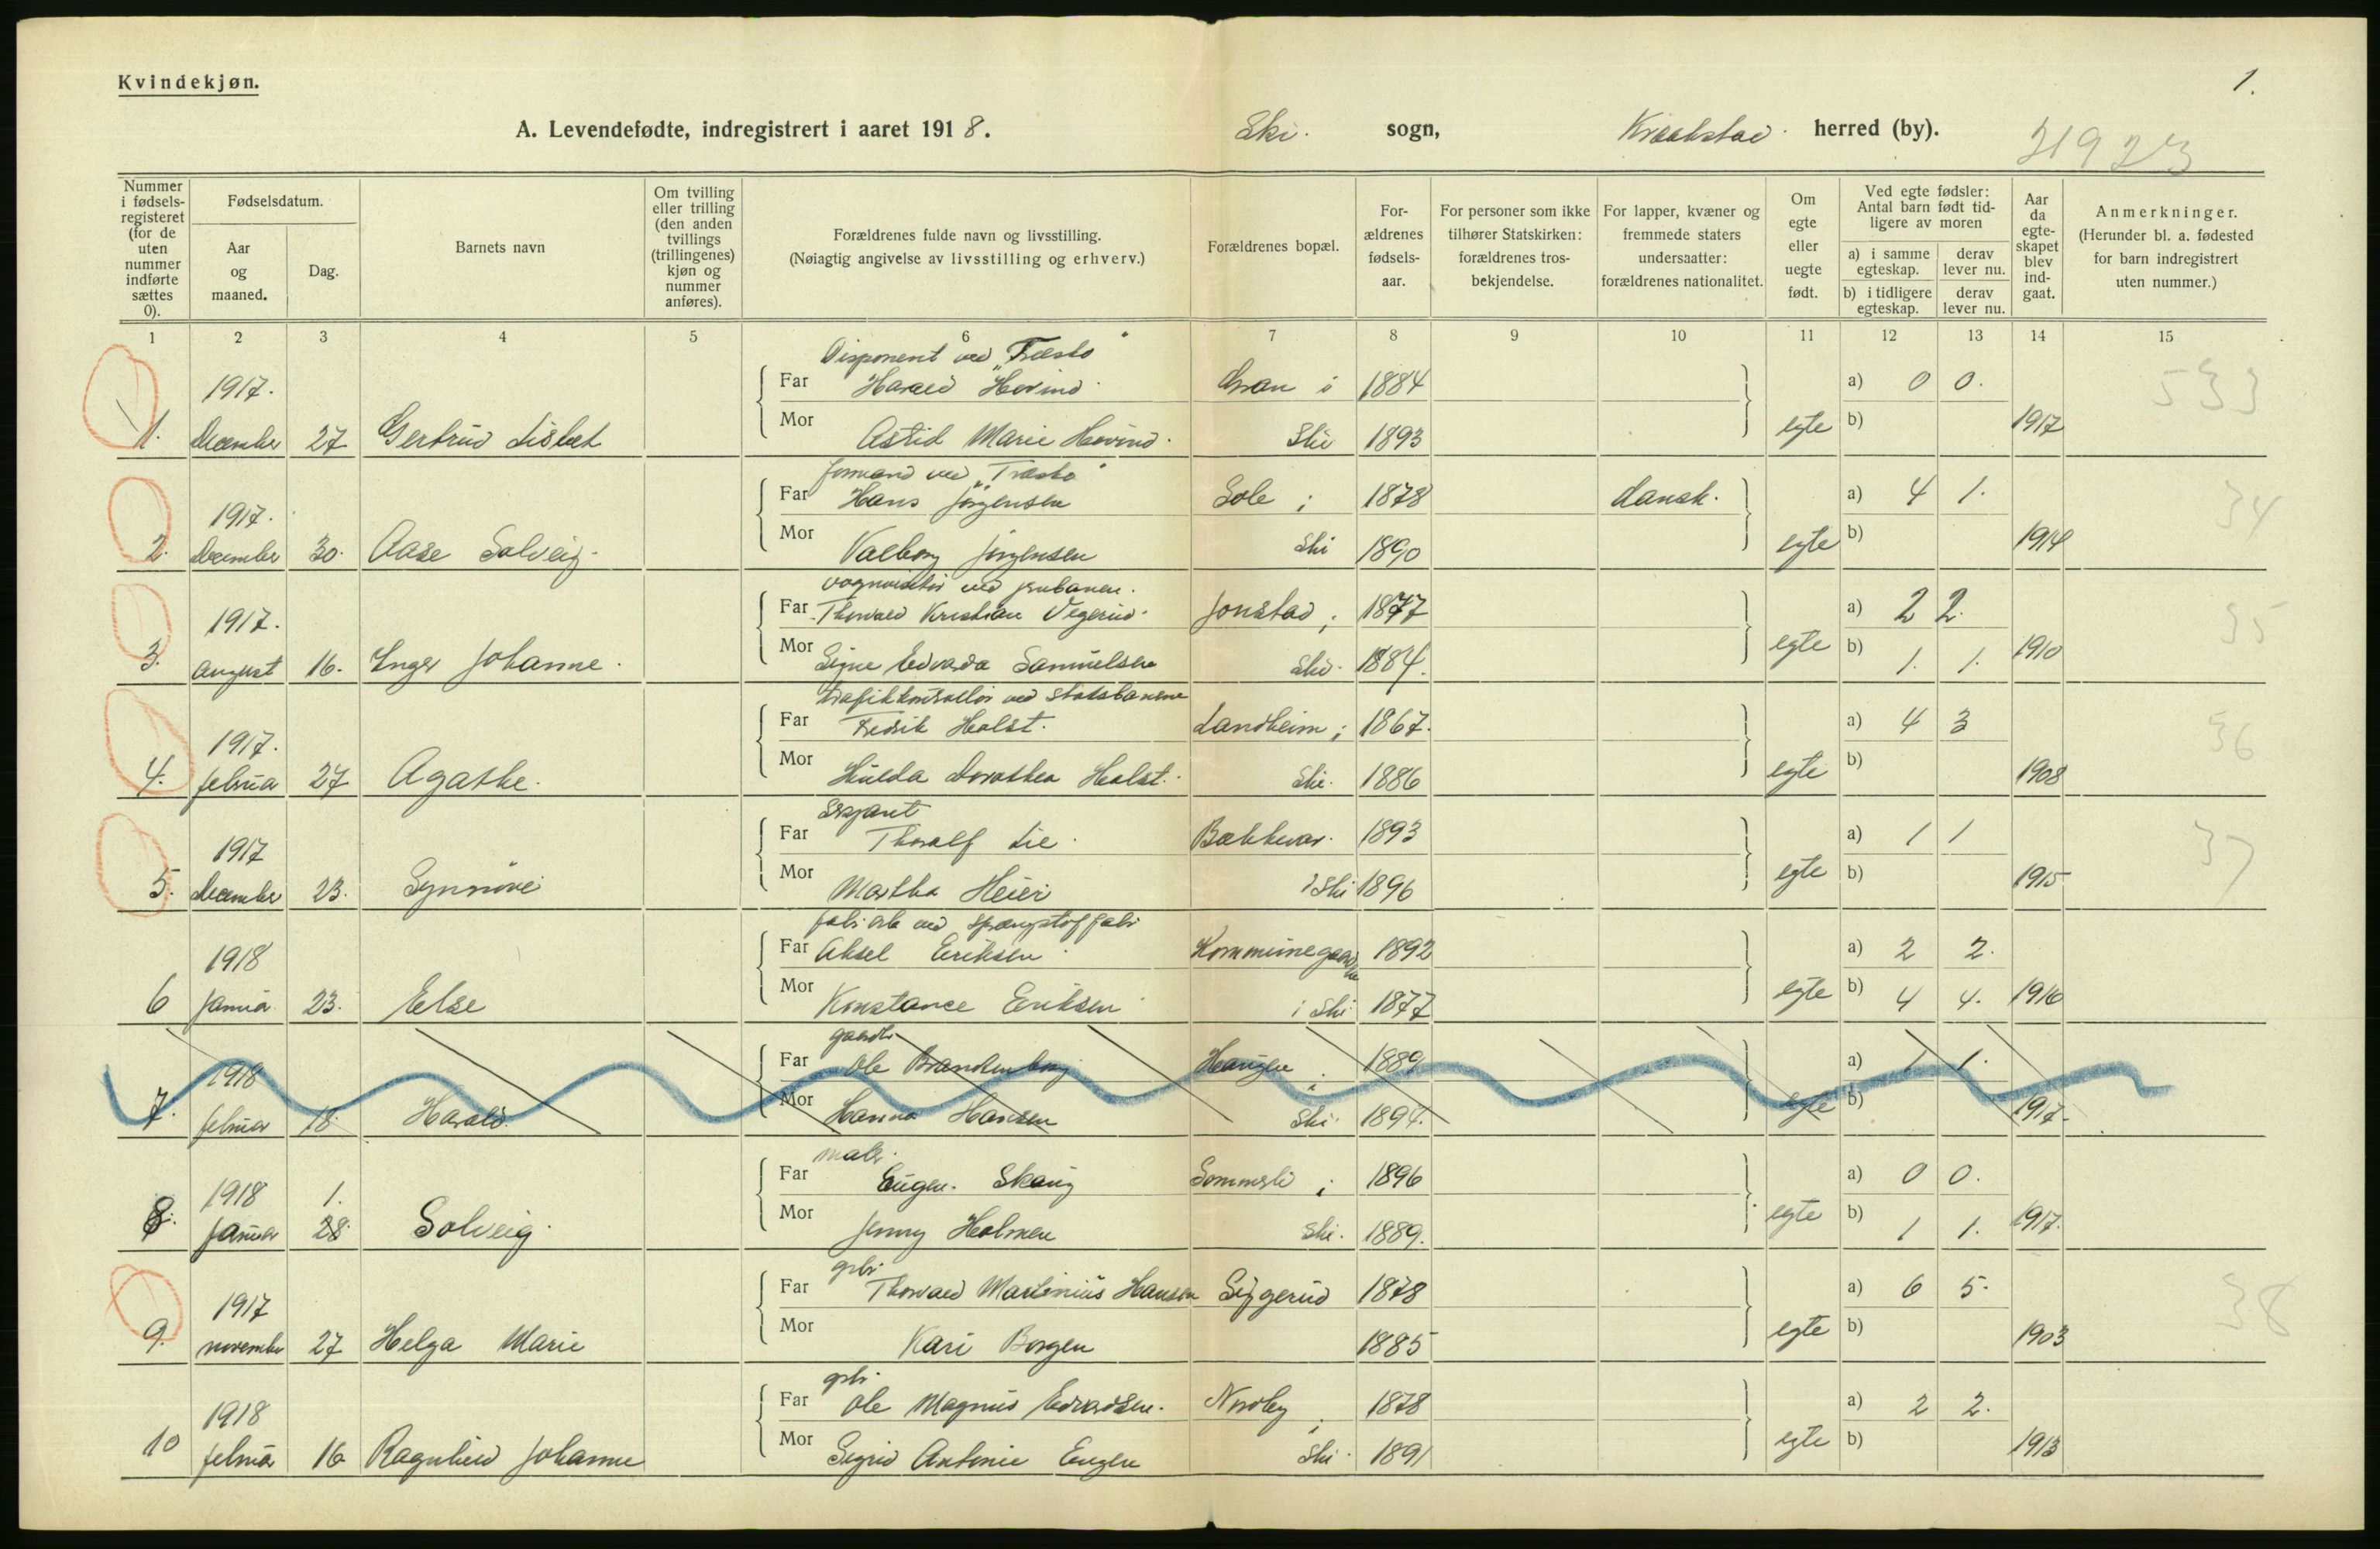 Kvindekjøn.
1.
A. Levendefødte, indregistrert i aaret 1918. Ski. sogn, Kraakstad herred (by).
31923
Nummer i fødsels-registeret (for de uten nummer indførte sættes 0).
Fødselsdatum.
Aar og maaned.
Dag.
Barnets navn
Om tvilling eller trilling (den anden tvillings (trillingenes) kjøn og nummer anføres).
Forældrenes fulde navn og livsstilling.
(Nøiagtig angivelse av livsstilling og erhverv.)
Forældrenes bopæl.
For-ældrenes fødsels-aar.
For personer som ikke tilhører Statskirken: forældrenes tros-bekjendelse.
For lapper, kvæner og fremmede staters undersaatter: forældrenes nationalitet.
Om egte eller uegte født.
Ved egte fødsler: Antal barn født tid-ligere av moren
a) i samme egteskap. derav lever nu.
b) i tidligere egteskap. derav lever nu.
Aar da egte-skapet blev ind-gaat.
Anmerkninger.
(Herunder bl. a. fødested for barn indregistrert uten nummer.)
1 2 3 4 5 6 7 8 9 10 11 12 13 14 15
Disponent ved "Træsko"
1917. Far Harald Hovind. Gran i 1884 a) 0 0. 533
1. December 27 Gertrud Lisbet Mor Astid Marie Hovind. Ski 1893 egte b) 1917
formand ved "Træsko"
1917. Far Hans Jørgensen Sole i 1878 dansk. a) 4 1. 34
2. December 30. Aase Solveig. Mor Valborg Jørgensen Ski 1890 egte b) 1914
ved jernbanen.
1917. Far Thorvald Kristian Vegerud. Jonstad i 1877 a) 2 2. 35
3. august 16. Inger Johanne. Mor Signe Edvarda Samuelsen Ski. 1884. egte b) 1. 1. 1910
trafikkontrollør ved statsbanerne
1917. Far Fredrik Holst. Landheim i 1867. a) 4 3 36
4. februar 27 Agathe. Mor Hulda Dorothea Holst. Ski. 1886 egte b) 1908
Sersjant
1917 Far Thoralf Lie. Bækkevar. 1893 a) 1 1 37
5. December 23. Synnøve Mor Martha Heier i Ski 1896 egte b) 1915
fabr. arb. ved sprængstoffabr
1918 Far Aksel Eriksen Kommunegaarden 1892 a) 2 2.
6 januar 23. Else Mor Konstance Eriksen i Ski 1877 egte b) 4 4. 1916
gaardbr
1918 Far Ole Brandenborg Haugen i 1889 a) 1 1.
7. februar 18. Harald. Mor Hanna Hansen Ski. 1894. egte b) 1917.
maler.
1918 1. Far Eugen. Skaug Sommerli i 1896 a) 0 0.
8. januar 28 Solveig. Mor Jenny Holmen Ski. 1889. egte b) 1 1. 1917.
gbr.
1917 Far Thorvald Martinius Hansen Siggerud 1878 a) 6 5. 38
9. november 27 Helga Marie Mor Kari Borgen 1885 egte b) 1903
gbr.
1918 Far Ole Magnus Edvardsen. Nordby i 1878 a) 2 2.
10 februar 16 Ragnhild Johanne Mor Sigrid Antonie Engen Ski. 1891 egte b) 1913